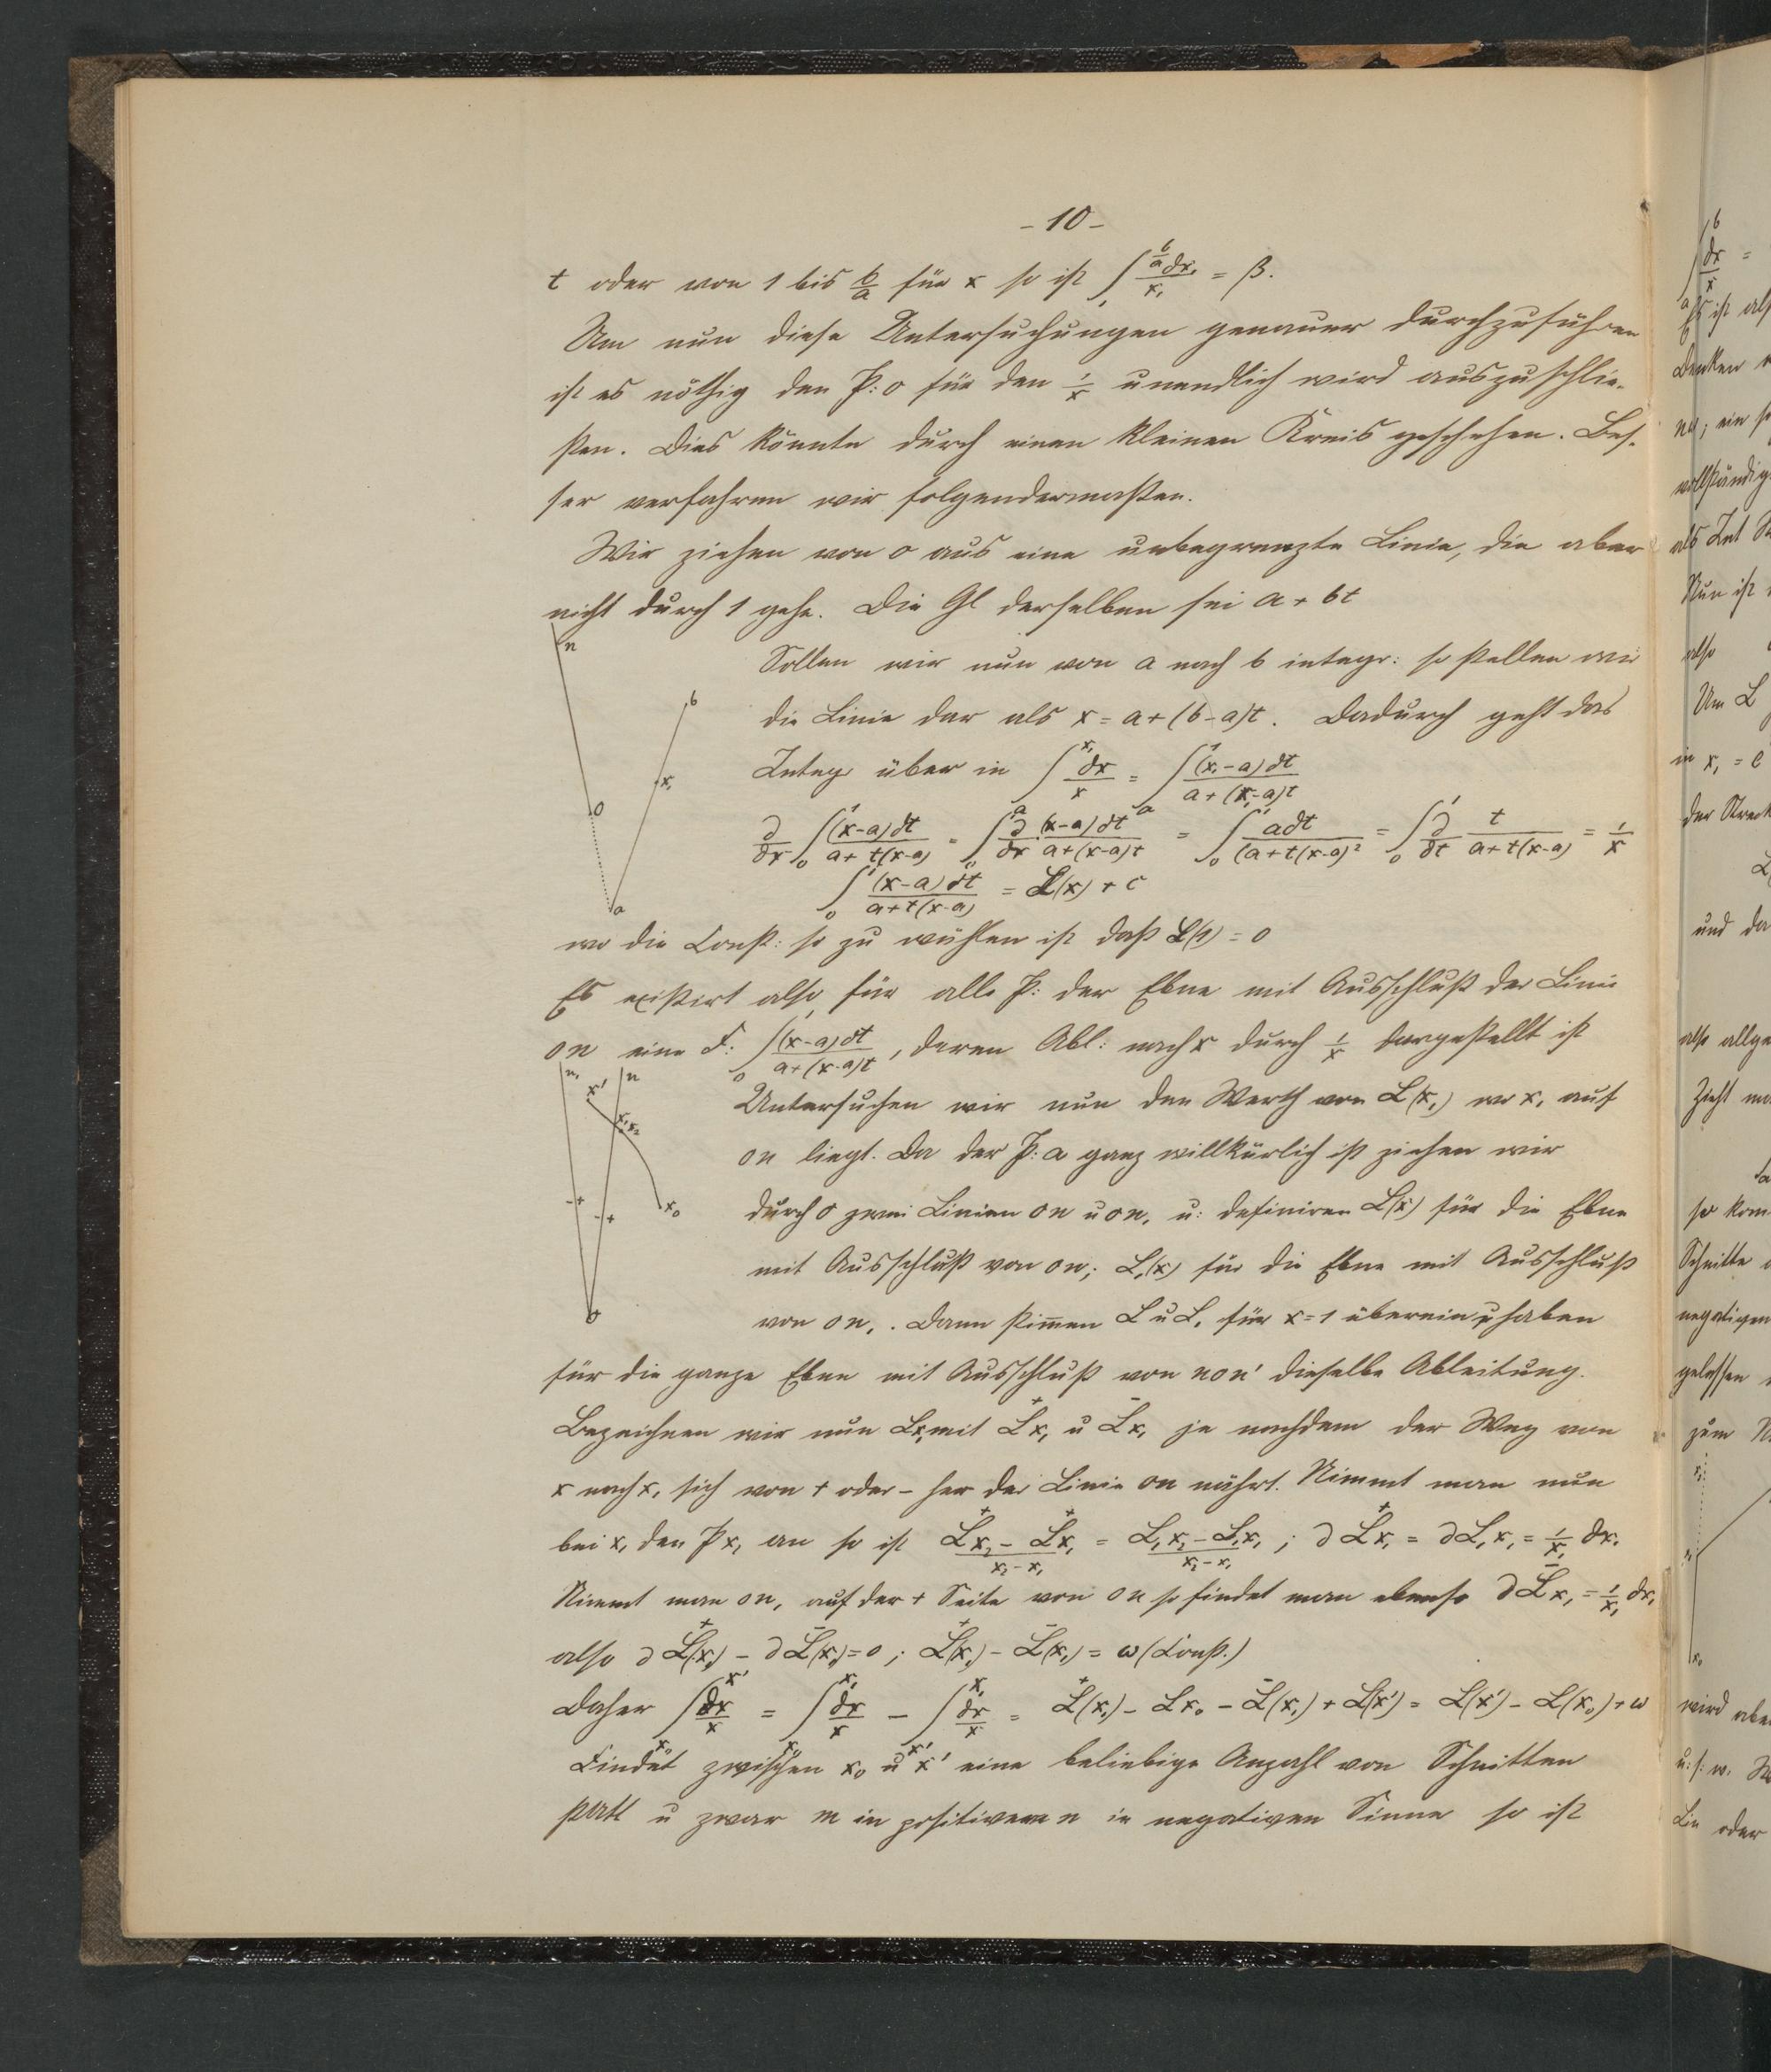 - 10 -
t oder von 1 bis b/a für x so ist ∫₁^{b/a} dx₁/x₁ = β.
Um nun diese Untersuchungen genauer durchzuführen
ist es nöthig den P: o für den 1/x unendlich wird auszuschlie-
ßen. Dies könnte durch einen kleinen Kreis geschehen. Bes-
ser verfahren wir folgendermaßen.
Wir ziehen von o aus eine unbegrenzte Linie, die aber
nicht durch 1 gehe. Die Gl derselben sei a + bt
n
b
x₁
o
a
Sollen wir nun von a nach b integr: so stellen wir
die Linie dar als x = a + (b - a)t. Dadurch geht das
Integ über in ∫ₐ^{x₁} dx/x = ∫ₐ^1 (x₁-a)dt / a + (x₁-a)t
∂/∂x ∫₀^1 (x-a)dt / a + t(x-a) = ∫₀^1 ∂/∂x (x-a)dt / a+(x-a)t = ∫₀^1 adt / (a+t(x-a)² = ∫₀^1 ∂/∂t t / a+t(x-a) = 1/x
∫₀^1 (x-a)dt / a+t(x-a) = L(x) + c
wo die Const: so zu wählen ist daß L(1) = 0
Es existirt also für alle P: der Ebne mit Ausschluß der Linie
on eine F: ∫₀^1 (x-a)dt / a+(x-a)t, deren Abl: nach x durch 1/x dargestellt ist
n₁
x'
n
x₁x₂
x₀
- +
- +
o
Untersuchen wir nun den Werth von L(x₁) wo x₁ auf
on liegt. Da der P: a ganz willkürlich ist ziehen wir
durch o zwei Linien on u on₁ u: definiren L(x) für die Ebne
mit Ausschluß von on; L₁(x) für die Ebne mit Ausschluß
von on₁. Dann stim̄en L u L₁ für x=1 überein u haben
für die ganze Ebne mit Ausschluß von non' dieselbe Ableitung.
Bezeichnen wir nun Lx₁ mit L⁺x₁ u L⁻x₁ je nachdem der Weg von
x nach x₁ sich von + oder - her der Linie on nährt. Nimmt man nun
bei x₁ den P x₂ an so ist L⁺x₂ - L⁺x₁ / x₂ - x₁ = L₁x₂ - L₁x₁ / x₂ - x₁ ; ∂L⁺x₁ = ∂L₁x₁ = 1/x₁ dx₁
Nimmt man on₁ auf der + Seite von on so findet man ebenso ∂L⁻x₁ = 1/x₁ dx₁
also ∂L⁺(x₁) - ∂L⁻(x₁) = 0 ; L⁺(x₁) - L⁻(x₁) = ω (Const.)
Daher ∫_{x₀}^{x'} dx/x = ∫_{x₀}^{x₁} dx/x - ∫_{x'}^{x₁} dx/x = L⁺(x₁) - Lx₀ - L⁻(x₁) + L(x') = L(x') - L(x₀) + ω
Findet zwischen x₀ u x' eine beliebige Anzahl von Schnitten
statt u zwar m in positivem n in negativen Sinne so ist